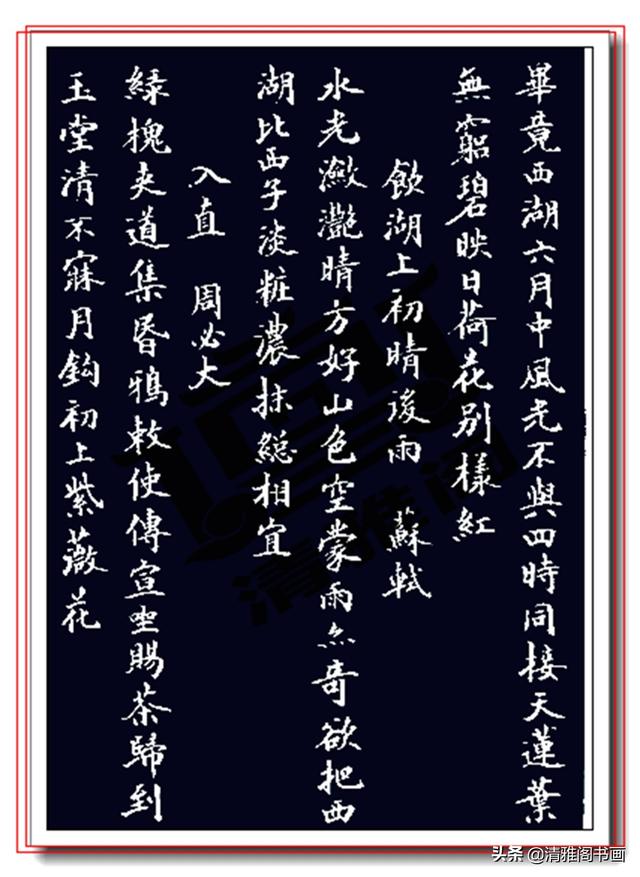 畢竟西湖六月中風光不與四時同接天蓮葉
無窮碧映日荷花別樣紅
飲湖上初晴後雨 蘇軾
水光瀲灧晴方好山色空蒙雨亦奇欲把西
湖比西子淡粧濃抹總相宜
入直 周必大
綠槐夾道集昏鴉敕使傳宣坐賜茶歸到
玉堂清不寐月鈎初上紫薇花
清雅阁
头条@清雅阁书画